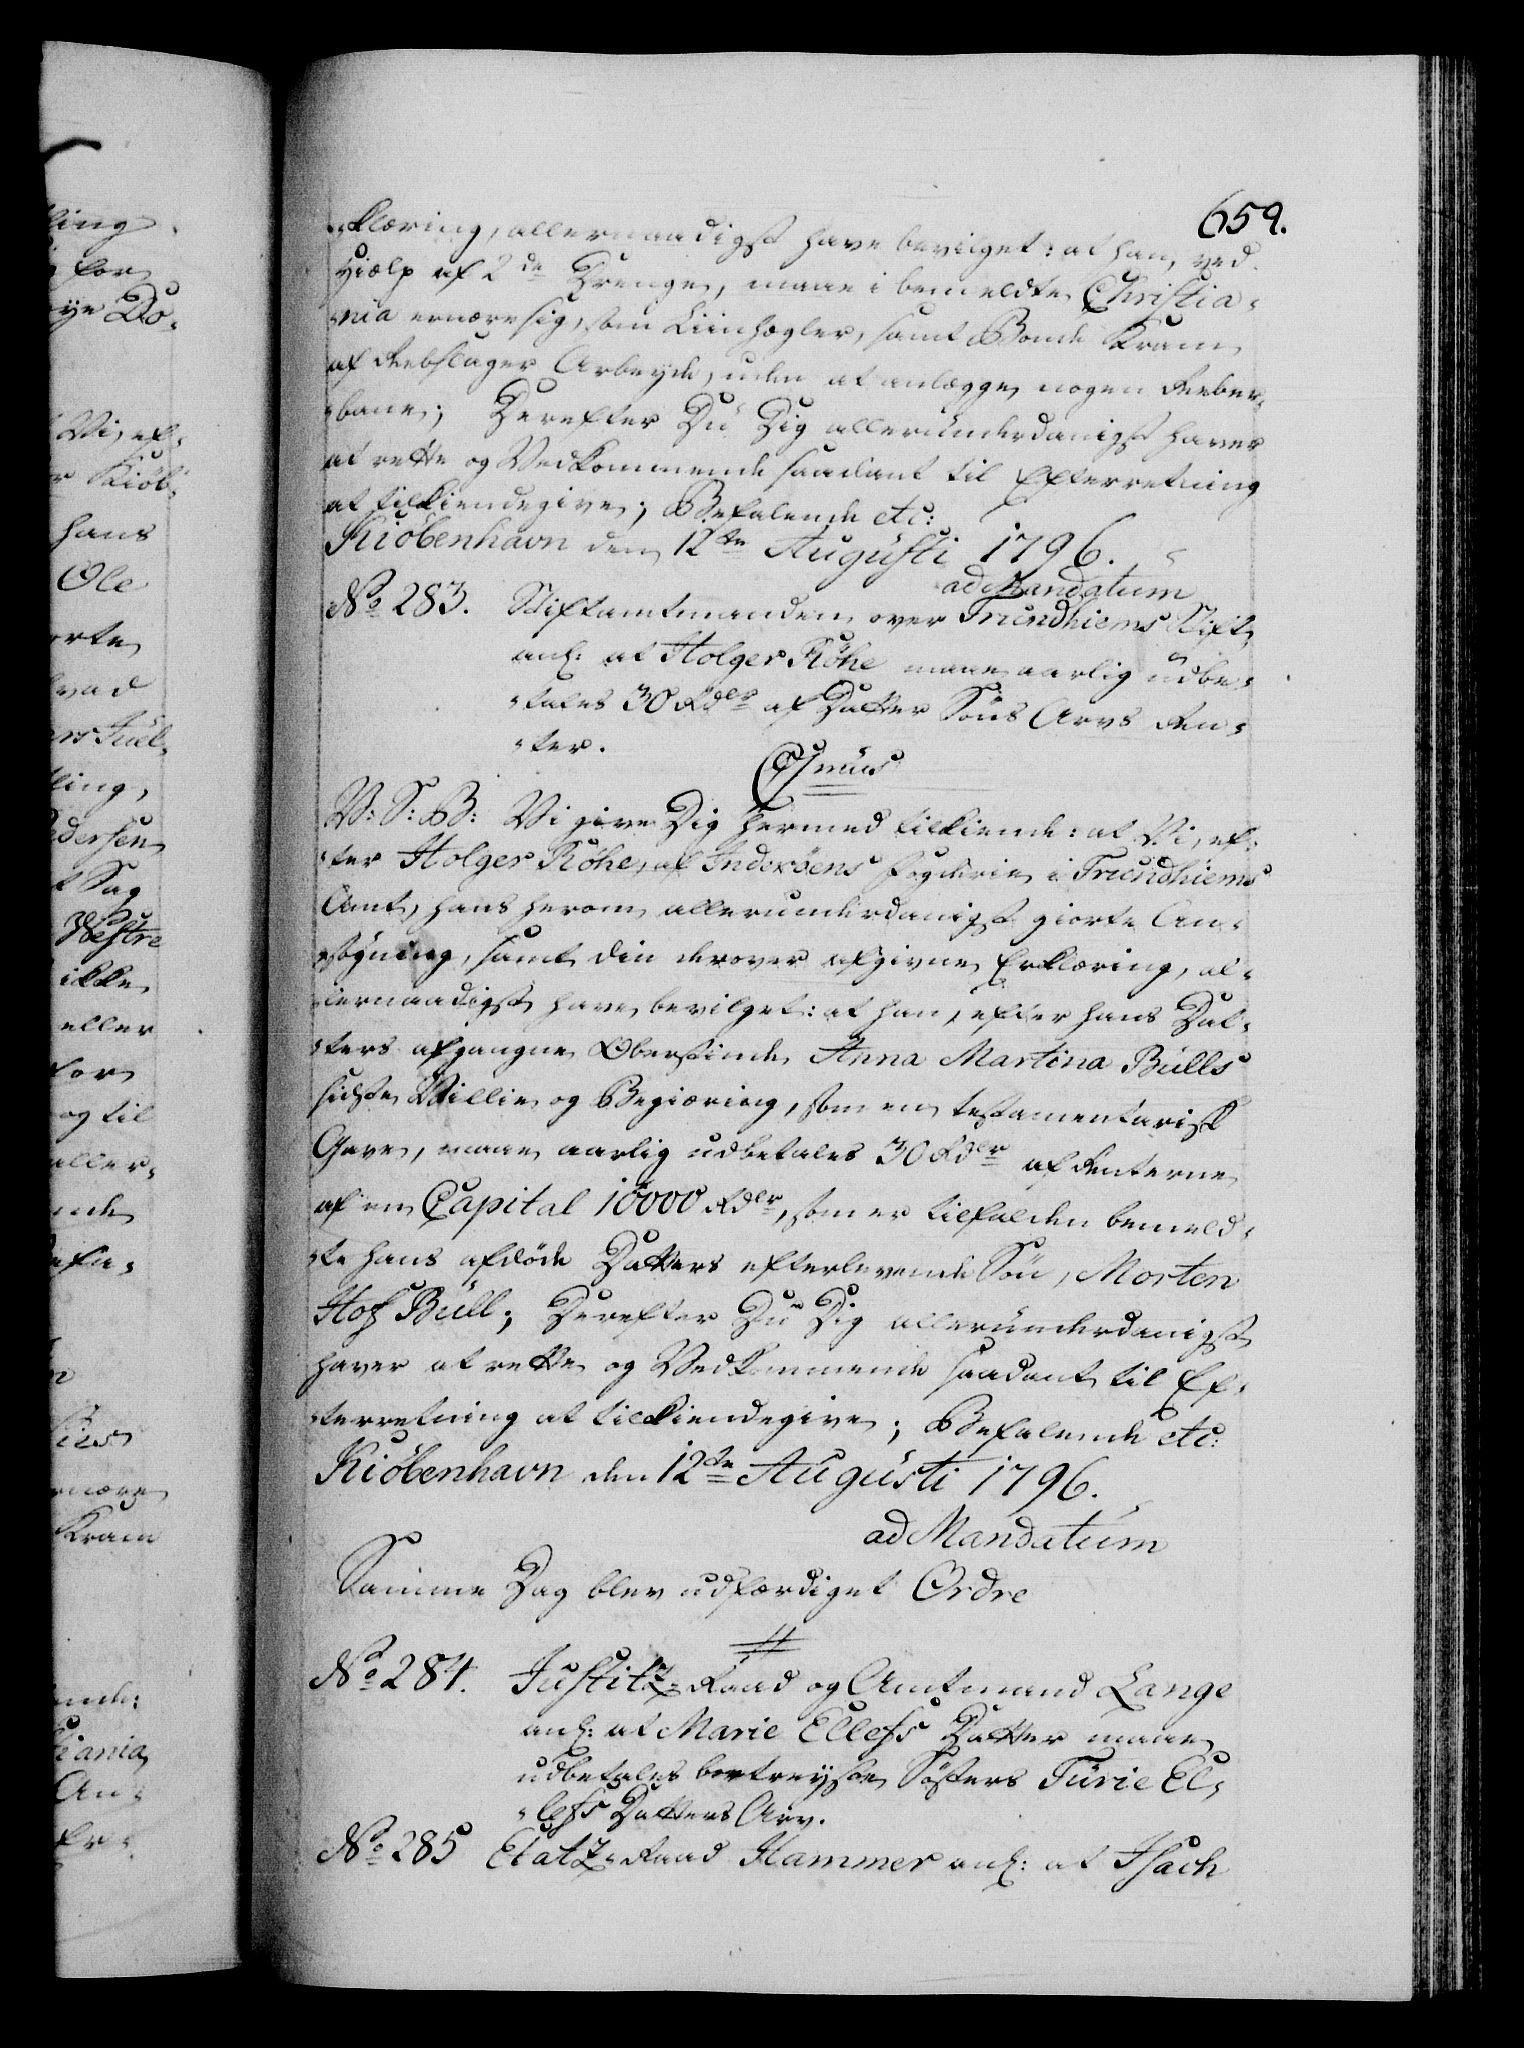 659.
klæring, allernaadigst have bevilget: at han, ved
Hiælp af 2de Drenge, maae i bemeldte Christia-
nia ernære sig, som Liinhægler, samt Bonde Kram
af Reebslager Arbeyde, uden at anlægge nogen Reeber-
bane; Derefter Du Dig allerunderdanigst haver
at rette og Vedkommende saadant til Efterretning
at tilkiendegive; Befalende etc:
Kiöbenhavn den 12te Augusti 1796.
ad Mandatum
No 283. Stiftamtmanden over Trundhiems Stift,
anl: at Holger Röhe maae aarlig udbe-
tales 30 Rdlr af Datter Söns Arvs Ren-
ter.
V: S: B: Vi give Dig hermed tilkiende: at Vi, ef-
ter Holger Röhe, af Inderöens Fogderie i Trundhiems
Amt, hans herom allerunderdanigst giorte An-
søgning, samt din derover afgivne Erklæring, al-
lernaadigst have bevilget: at han, efter hans Dat-
ters afgangne Oberstinde Anna Martina Bülls
sidste Villie og Begiæring, som en testamentarisk
Gave, maae aarlig udbetales 30 Rdlr af Renterne
af en Capital 10000 Rdlr, som er tilfalden bemeld-
te hans afdøde Datters efterlevende Sön, Morten
Hof Büll; Derefter Du Dig allerunderdanigst
haver at rette og Vedkommende saadant til Ef-
terretning at tilkiendegive; Befalende etc:
Kiöbenhavn den 12te Augusti 1796.
ad Mandatum
Samme Dag blev udfærdiget Ordre
No 284. Justitz-Raad og Amtmand Lange
anl: at Marie Ellefs Datter maae
udbetales bortreyste Søsters Turie El-
lefs Datters Arv.
No 285 Etatz-Raad Hammer anl: at Isach